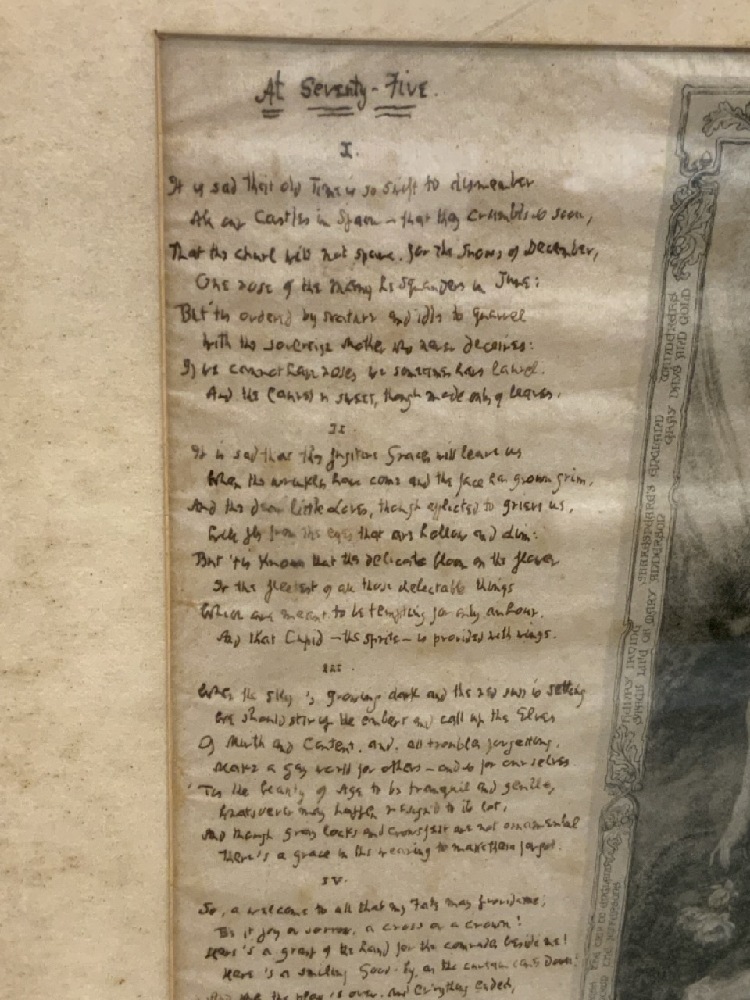 At Seventy-Five.
I.
It is sad that old Time is so swift to dismember
All our Castles in Spain – that they crumble so soon,
That the churl will not spare, for the Snows of December,
One rose of the many he squanders in June:
But 'tis ordered by nature and idle to quarrel
With the sovereign Mother who never deceives:
If we cannot have roses we sometimes have laurel.
And the laurel is sweet, though made only of leaves.
II.
It is sad that the fugitive Graces will leave us
When the wrinkles have come and the face has grown grim,
And the dear little Loves, though afflicted to grieve us,
Will fly from the eyes that are hollow and dim:
But 'tis known that the delicate bloom on the flower
Is the fleetest of all those delectable things
Which are meant to be tempting for only an hour.
And that Cupid – the sprite – is provided with wings.
III.
When the sky is growing dark and the red sun is setting
We should stir up the embers and call up the Elves
Of Mirth and Content, and, all troubles forgetting,
Make a gay world for others – and so for ourselves.
'Tis the beauty of Age to be tranquil and gentle,
Whatsoever may happen resign'd to its lot,
And though gray locks and crowsfeet are not ornamental
There's a grace in the wearing to make them forgot.
IV.
So, a welcome to all that my Fate may provide me,
Be it joy or sorrow, a cross or a crown!
Here's a grasp of the hand for the comrade beside me!
Here's a smiling Good-by, as the curtain comes Down!
And the play is over, and everything ended,
WANDERERS
GRAY DAYS AND GOLD
SHAKESPEARE'S ENGLAND
MARY ANDERSON
HENRY IRVING